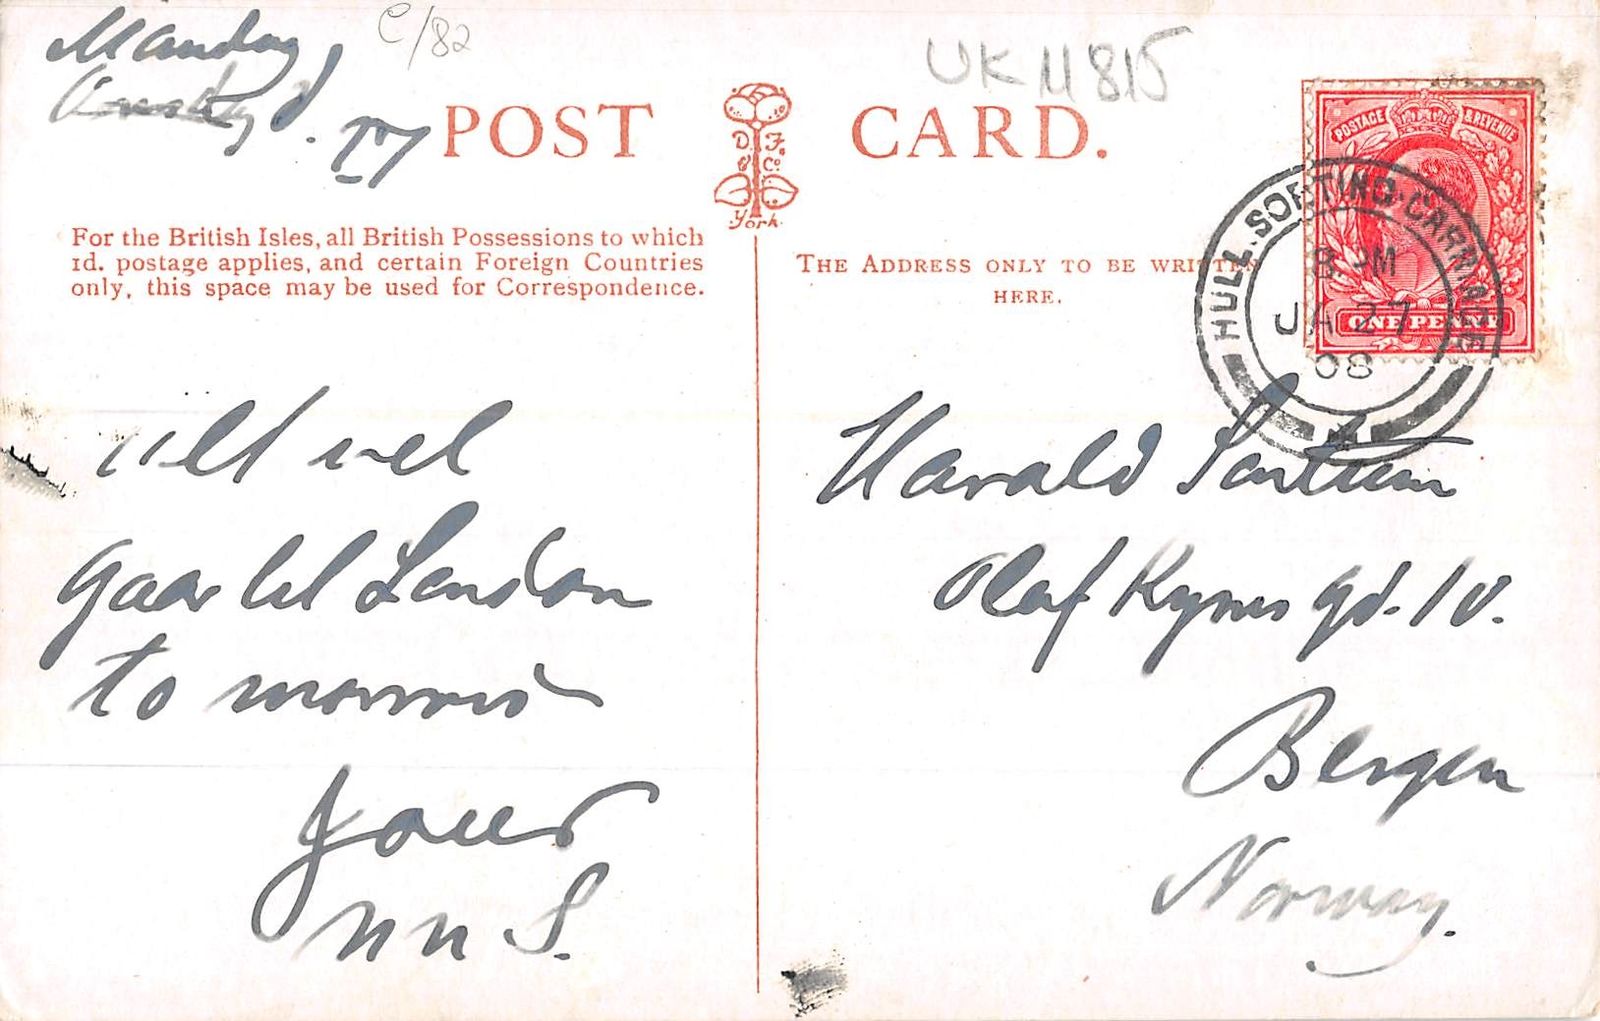 Manday
d. 27
C/82
UK 11815
POST CARD.
D. F.
& Co.
York.
POSTAGE & REVENUE
ONE PENNY
HULL. SORTING. CARRIAGE
8. PM
JA 27
08
For the British Isles, all British Possessions to which
1d. postage applies, and certain Foreign Countries
only, this space may be used for Correspondence.
THE ADDRESS ONLY TO BE WRITTEN
HERE.
Alt vel
Gaar til London
to morrow
Harald
Olaf Kyrres gd. 10.
Bergen
Norway.